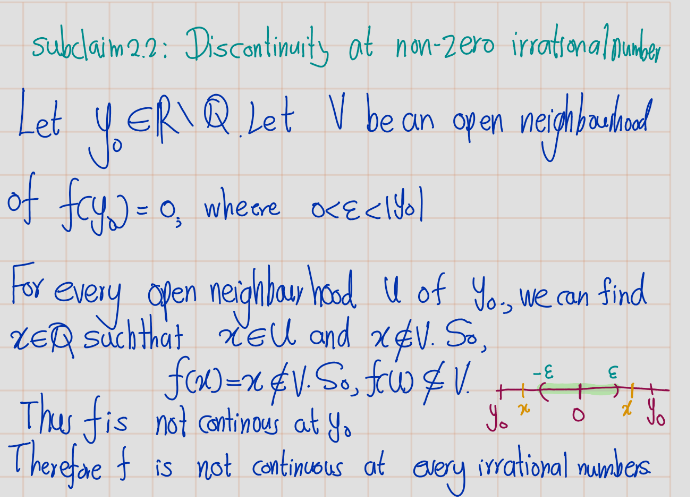 subclaim 2.2: Discontinuity at non-zero irrational number
Let y₀ ∈ ℝ \ ℚ. Let V be an open neighbourhood
of f(y₀) = 0, wheere 0<ε<|y₀|
For every open neighbour hood U of y₀, we can find
x∈ℚ such that x∈U and x∉V. So,
f(x)=x ∉ V. So, f(U) ⊄ V.
-ε ε
y₀ x 0 x y₀
Thus f is not continous at y₀
Therefore f is not continuous at every irrational numbers